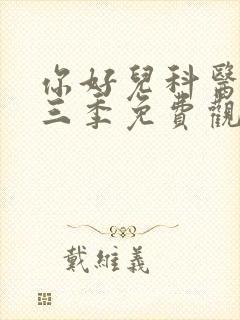 你好兒科醫
三季免費觀
戴維義